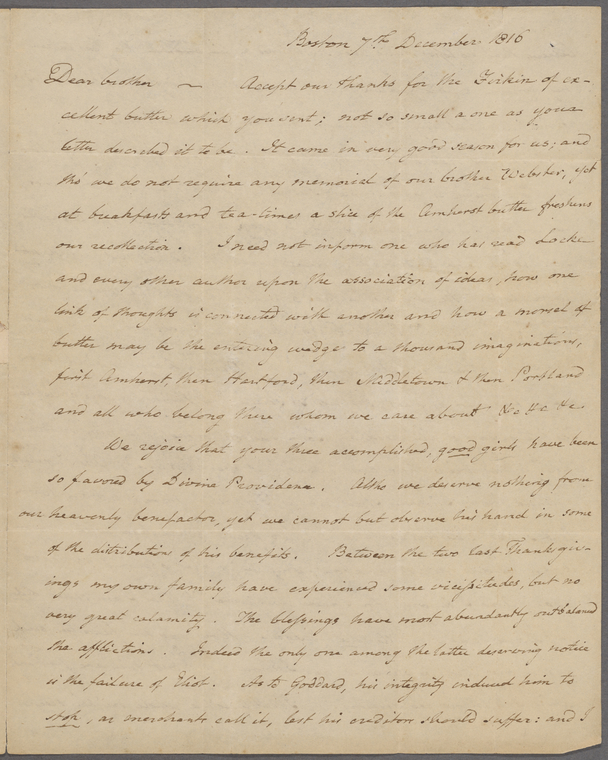 Boston 7th December 1816
Dear brother — Accept our thanks for the Firkin of ex-
cellent butter which you sent; not so small a one as your
letter described it to be. It came in very good season for us; and
tho' we do not require any memorial of our brother Webster, yet
at breakfasts and tea-times a slice of the Amherst butter freshens
our recollection. I need not inform one who has read Locke
and every other author upon the association of ideas, how one
link of thoughts is connected with another and how a morsel of
butter may be the entering wedge to a thousand imaginations,
first Amherst, then Hartford, then Middletown & then Portland
and all who belong there whom we care about &c &c &c
We rejoice that your three accomplished, good girls have been
so favored by Divine Providence. Altho we deserve nothing from
our heavenly benefactor, yet we cannot but observe his hand in some
of the distribution of his benefits. Between the two last Thanksgiv-
ings my own family have experienced some vicissitudes, but no
very great calamity. The blessings have most abundantly outbalanced
the afflictions. Indeed the only one among the latter deserving notice
is the failure of Eliot. As to Goddard, his integrity induced him to
stop, as merchants call it, lest his creditors should suffer: and I